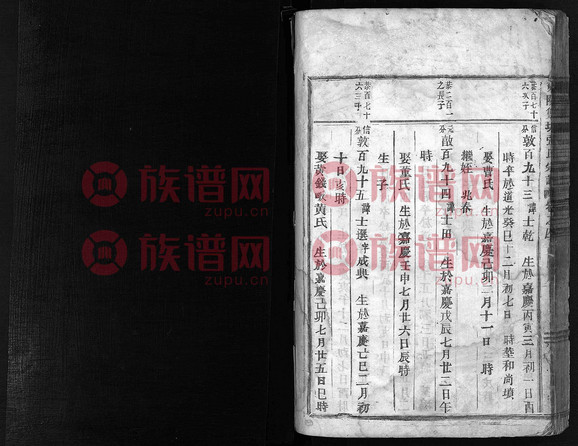 葉百七十
六三子
信分
敦百九十三 諱士乾 生於嘉慶丙寅三月初一日酉
時卒於道光癸巳十二月初七日 時葬和尚墳
娶曹氏 生於嘉慶己卯二月十一日 時
葉二百一
之長子
元分
敵百九十四 諱士田 生於嘉慶戊辰七月廿三日午
時
繼姪 兆春
娶董氏 生於嘉慶壬申七月廿六日辰時
生 子
葉百七十
六三子
信分
敦百九十五 諱士選字咸興 生於嘉慶己巳二月初
十日 時
娶黃錢 黃氏 生於嘉慶己卯七月廿五日巳時
族谱网
www.zupu.cn
族谱网
www.zupu.cn